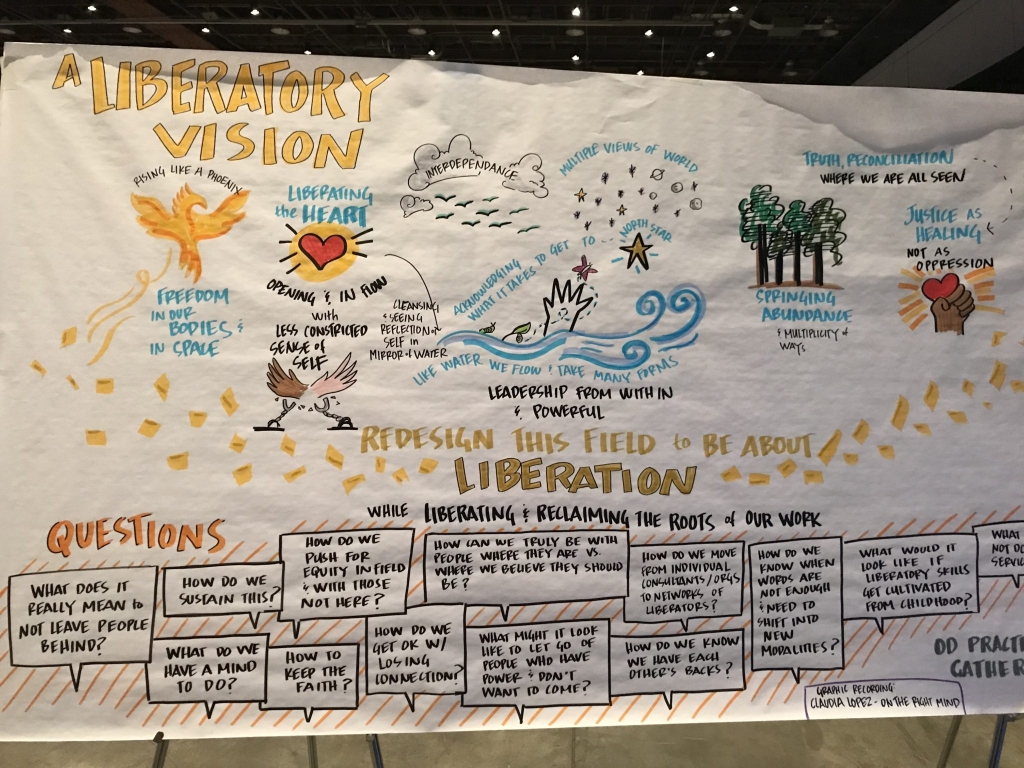 A LIBERATORY
VISION
RISING LIKE A PHOENIX
FREEDOM
IN OUR
BODIES &
IN SPACE
LIBERATING
the HEART
OPENING & IN FLOW
with
LESS CONSTRICTED
SENSE of
SELF
CLEANSING
& SEEING
REFLECTION of
SELF IN
MIRROR of WATER
INTERDEPENDANCE
MULTIPLE VIEWS OF WORLD
NORTH STAR
ACKNOWLEDGING
WHAT IT TAKES TO GET TO
LIKE WATER WE FLOW & TAKE MANY FORMS
LEADERSHIP FROM WITHIN
& POWERFUL
SPRINGING
ABUNDANCE
& MULTIPLICITY of
WAYS
TRUTH, RECONCILIATION
WHERE WE ARE ALL SEEN
JUSTICE AS
HEALING
NOT AS
OPPRESSION
REDESIGN THIS FIELD to BE ABOUT
LIBERATION
WHILE LIBERATING & RECLAIMING THE ROOTS of OUR WORK
QUESTIONS
WHAT DOES IT
REALLY MEAN to
NOT LEAVE PEOPLE
BEHIND?
HOW DO WE
SUSTAIN THIS?
WHAT DO WE
HAVE A MIND
TO DO?
HOW DO WE
PUSH FOR
EQUITY IN FIELD
& WITH THOSE
NOT HERE?
HOW TO
KEEP THE
FAITH?
HOW DO WE
GET OK W/
LOSING
CONNECTION?
HOW CAN WE TRULY BE WITH
PEOPLE WHERE THEY ARE VS.
WHERE WE BELIEVE THEY SHOULD
BE?
WHAT MIGHT IT LOOK
LIKE TO LET GO OF
PEOPLE WHO HAVE
POWER & DON'T
WANT TO COME?
HOW DO WE MOVE
FROM INDIVIDUAL
CONSULTANTS/ORGS
TO NETWORKS OF
LIBERATORS?
HOW DO WE KNOW
WE HAVE EACH
OTHER'S BACKS?
HOW DO WE
KNOW WHEN
WORDS ARE
NOT ENOUGH
& NEED TO
SHIFT INTO
NEW
MODALITIES?
WHAT WOULD IT
LOOK LIKE IF
LIBERATORY SKILLS
GET CULTIVATED
FROM CHILDHOOD?
WHAT
NOT DO
SERVIC
OD PRACTI
GATHER
GRAPHIC RECORDING:
CLAUDIA LOPEZ - ON THE RIGHT MIND